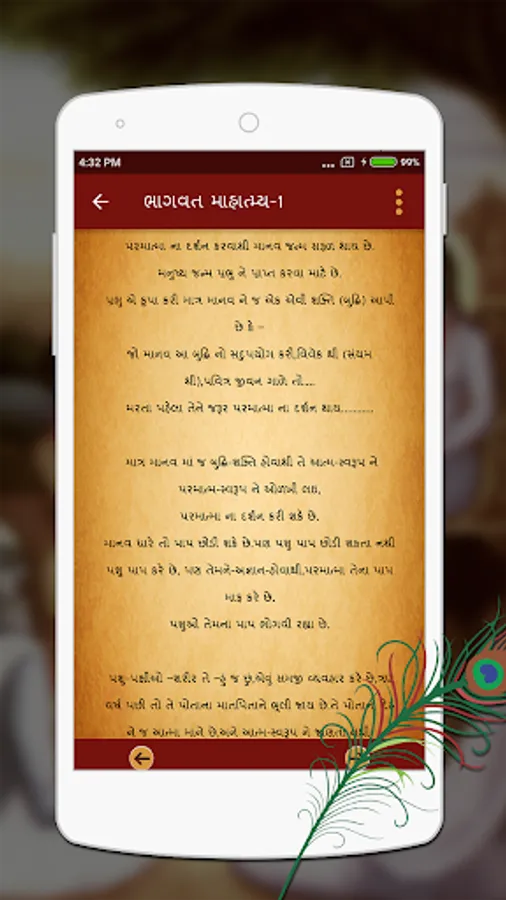 4:32 PM
99%
ભાગવત માહાત્મ્ય-1
પરમાત્મા ના દર્શન કરવાથી માનવ જન્મ સફળ થાય છે.
મનુષ્ય જન્મ પ્રભુ ને પ્રાપ્ત કરવા માટે છે.
પ્રભુ એ કૃપા કરી માત્ર માનવ ને જ એક એવી શક્તિ (બુદ્ધિ) આપી
છે કે –
જો માનવ આ બુદ્ધિ નો સદુપયોગ કરી,વિવેક થી (સંયમ
થી),પવિત્ર જીવન ગાળે તો....
મરતા પહેલા તેને જરૂર પરમાત્મા ના દર્શન થાય..........
માત્ર માનવ માં જ બુદ્ધિ-શક્તિ હોવાથી તે આત્મ-સ્વરૂપ ને
પરમાત્મ-સ્વરૂપ ને ઓળખી લઇ,
પરમાત્મા ના દર્શન કરી શકે છે.
માનવ ધારે તો પાપ છોડી શકે છે.પણ પશુ પાપ છોડી શકતા નથી
પશુ પાપ કરે છે, પણ તેમને-અજ્ઞાન-હોવાથી,પરમાત્મા તેના પાપ
માફ કરે છે.
પશુઓ તેમના પાપ ભોગવી રહ્યા છે.
પશુ-પક્ષીઓ –શરીર તે –હું જ છું,એવું સમજી વ્યવહાર કરે છે,ત્રણ
વર્ષ પછી તો તે પોતાના માતપિતાને ભૂલી જાય છે.તે પોતાના દેહ
ને જ આત્મા માને છે.અને આત્મ-સ્વરૂપ ને જાણતા નથી